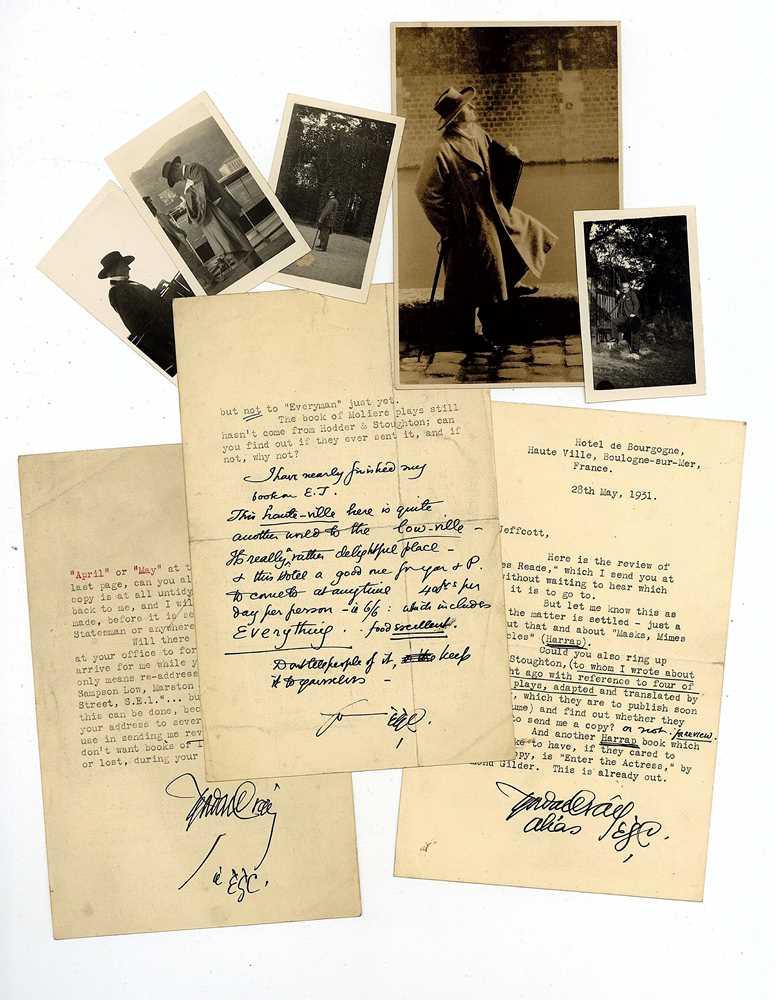 but not to "Everyman" just yet.
The book of Moliere plays still
hasn't come from Hodder & Stoughton; can
you find out if they ever sent it, and if
not, why not?
I have nearly finished my
book on E.T.
This haute-ville here is quite
another world to the low-ville -
It really rather delightful place -
& this Hotel a good one for you & P.
to come to at anytime 40frs per
day per person - is 6/6: which includes
Everything . . food excellent.
Dont tell people of it, keep
it to yourselves -
EGC.
Hotel de Bourgogne,
Haute Ville, Boulogne-sur-Mer,
France.
28th May, 1931.
Jeffcott,
Here is the review of
es Reade," which I send you at
without waiting to hear which
it is to go to.
But let me know this as
the matter is settled - just a
ut that and about "Masks, Mimes
cles" (Harrap).
Could you also ring up
Stoughton, (to whom I wrote about
ht ago with reference to four of
plays, adapted and translated by
, which they are to publish soon
ume) and find out whether they
to send me a copy? or not. for review.
And another Harrap book which
ke to have, if they cared to
opy, is "Enter the Actress," by
ond Gilder. This is already out.
Gordon Craig
alias EGC.
"April" or "May" at t
last page, can you al
copy is at all untidy
back to me, and I wil
made, before it is se
Statesman or anywhere
Will there
at your office to for
arrive for me while y
only means re-address
Sampson Low, Marston
Street, S.E.1."... bu
this can be done, bec
your address to sever
use in sending me rev
don't want books or l
or lost, during your
Gordon Craig
EGC.